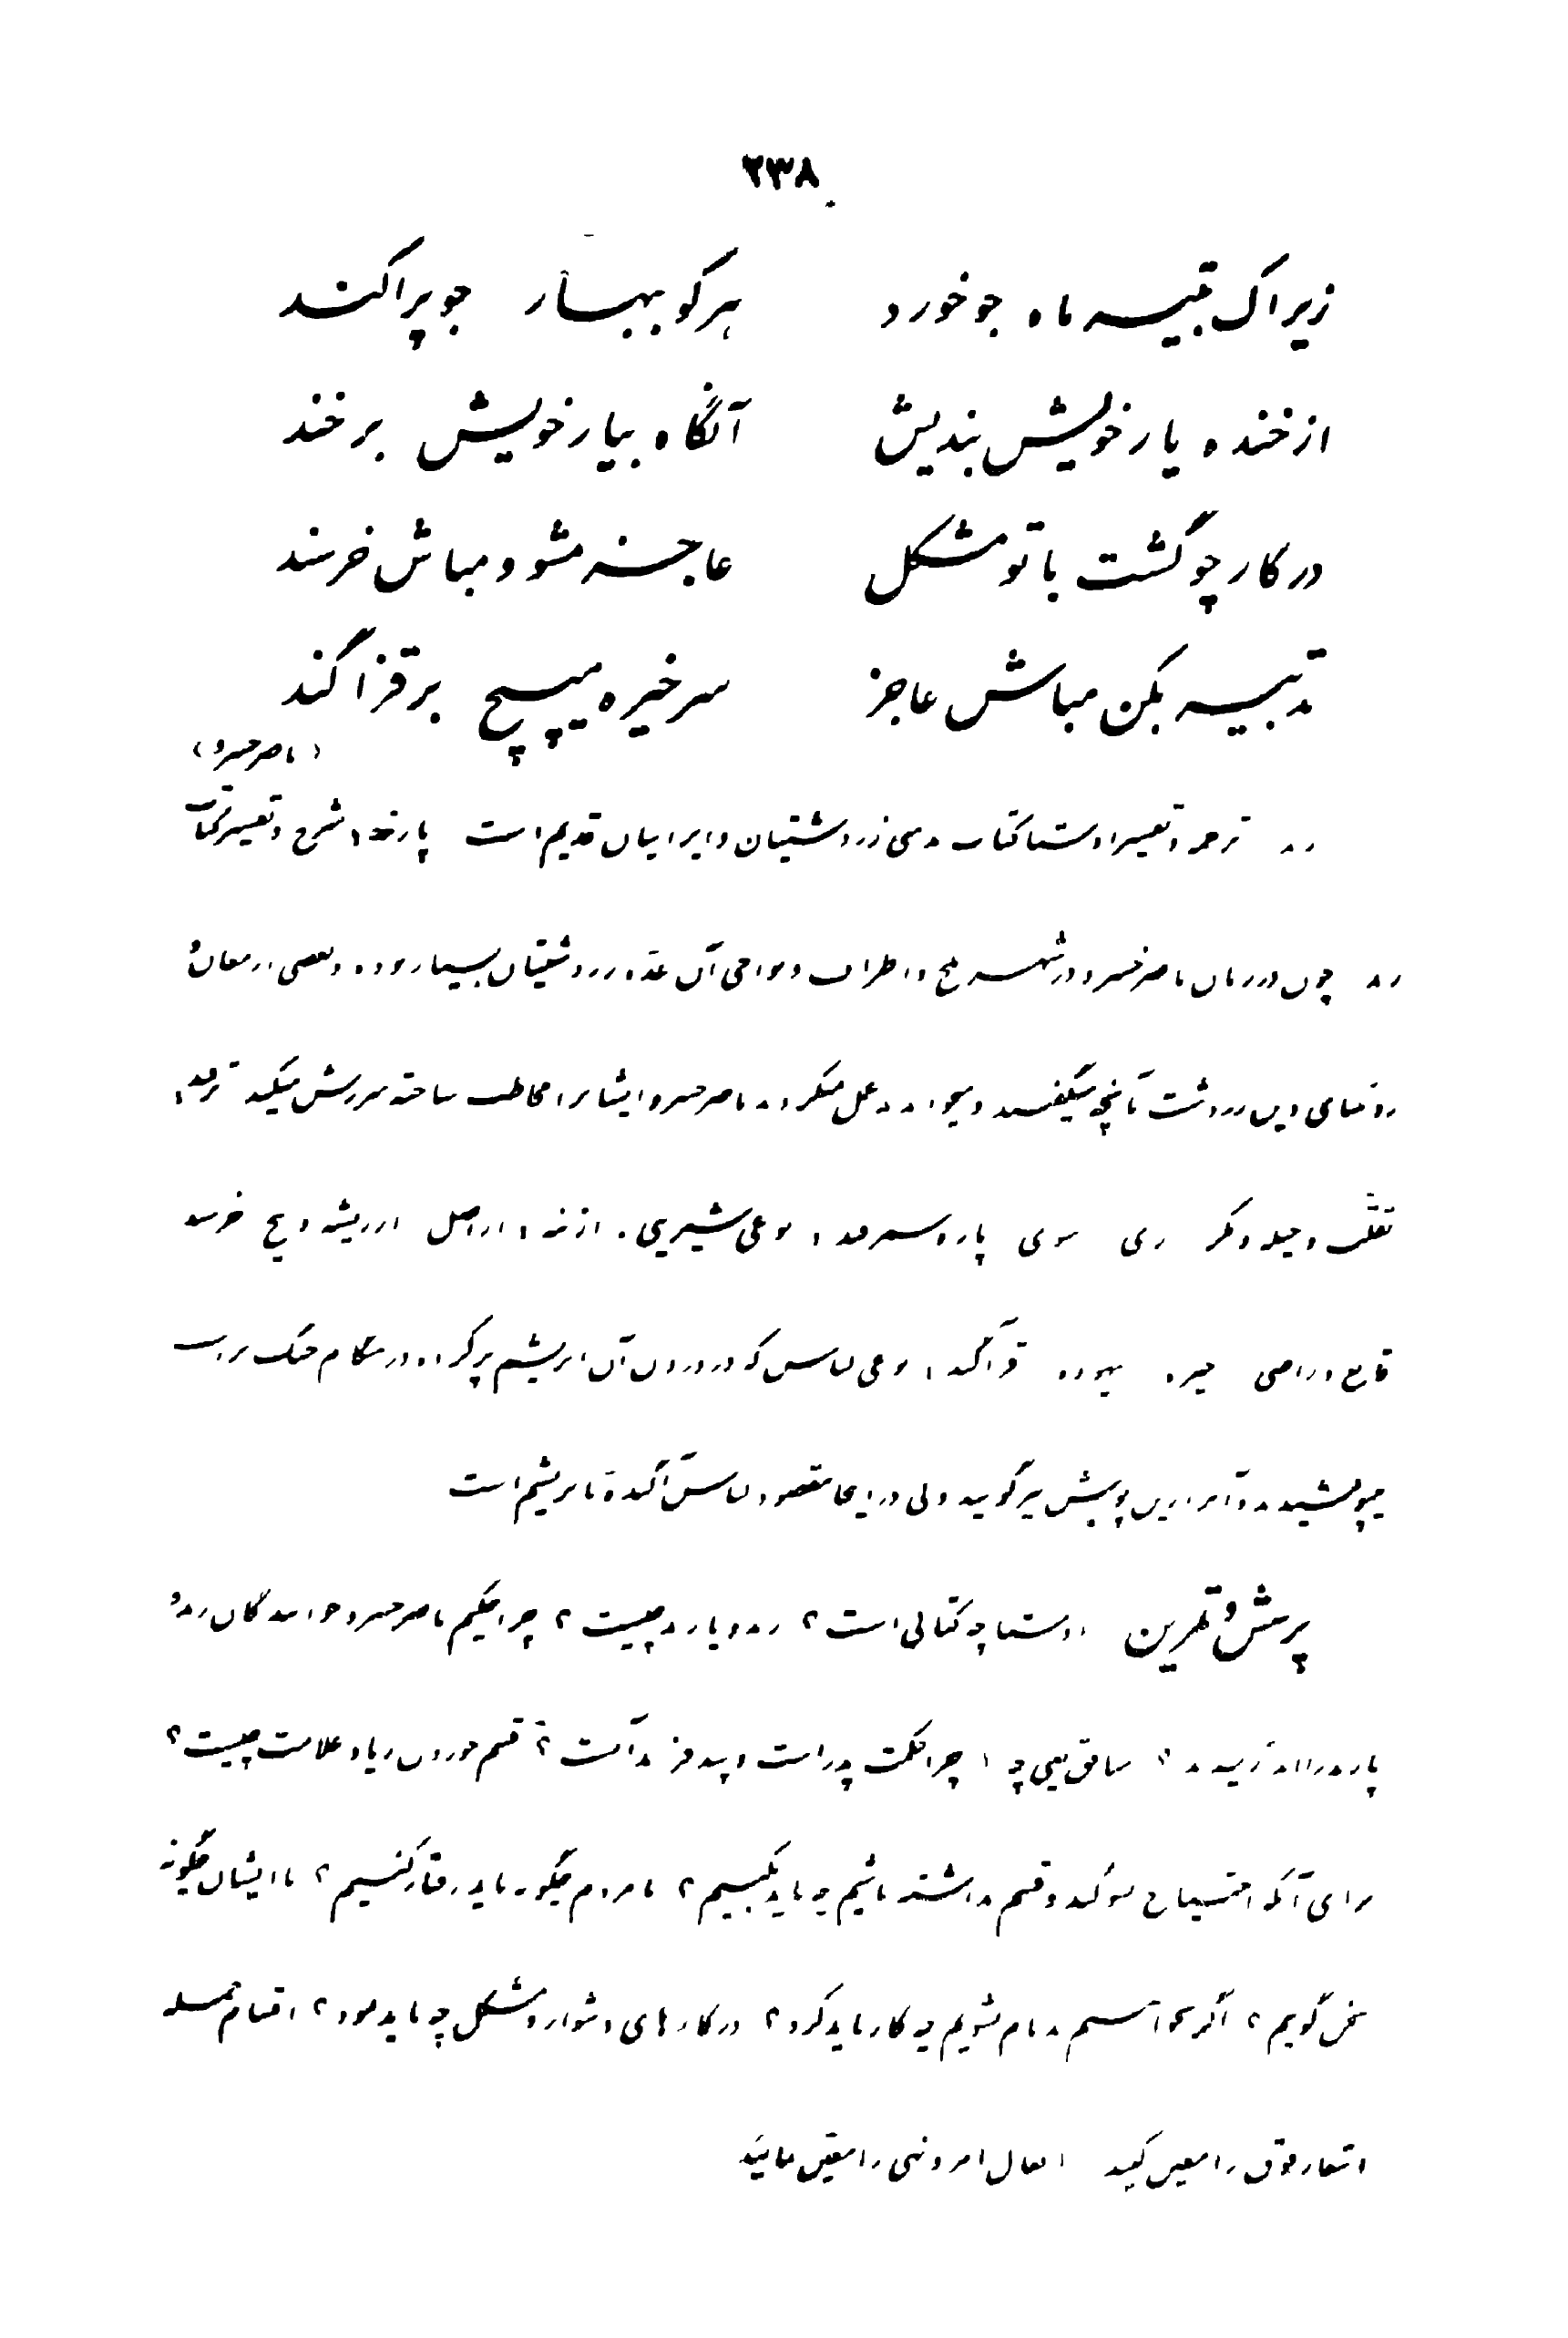 ۲۳۸
زیراک بتیر ماه جو خورد هرکو ببهار جو پراکند
از خنده یار خویش بندیش آنگاه بیار خویش برخند
در کار چو گشت با تو مشکل عاجز مشو و مباش خرسند
تدبیر بکن مباش عاجز سر خیره مپیچ بر قزاگند
(ناصر خسرو)
زند ترجمه و تفسیر اوستا کتاب دینی زردشتیان و ایرانیان قدیم است پازند، شرح و تفسیر کتاب
زند چون در زمان ناصر خسرو در شهر بلخ و اطراف و نواحی آن عده زردشتیان بسیار بوده و بعضی از مغان و
روحانیان دین زردشت بآنچه میگفتند و میخواندند عمل نمیکردند ناصر خسرو ایشانرا مخاطب ساخته سرزنش میکند ترفند،
تقلب و حیله و مکر زی سوی پازهر قند، نوعی شیرینی. از بنه، از اصل از ریشه و بیخ خرسند
قانع و راضی خیره بیهوده قزآگند، نوعی لباس که در درون آن ابریشم پر کرده در هنگام جنگ بر تن
میپوشیدند و آنرا بدین پوشش نیز گویند ولی در اینجا مقصود لباس آکنده بابریشم است
پرسش و تمرین اوستا چه کتابی است؟ زند و پازند چیست؟ چرا حکیم ناصر خسرو خوانندگان زند و
پازند را اندرز میدهد؟ سابق یعنی چه؟ چرا حکمت پدر است و پند فرزند آنست؟ قسم خوردن زیاد علامت چیست؟
برای آنکه احتیاج بسوگند و قسم نداشته باشیم چه باید بکنیم؟ با مردم چگونه باید رفتار کنیم؟ با ایشان چگونه
سخن گوییم؟ اگر بخواهیم بدنام نشویم چه کار باید کرد؟ در کارهای دشوار و مشکل چه باید نمود؟ اقسام جمله
اشعار فوق را معین کنید افعال امر و نهی را معین نمائید